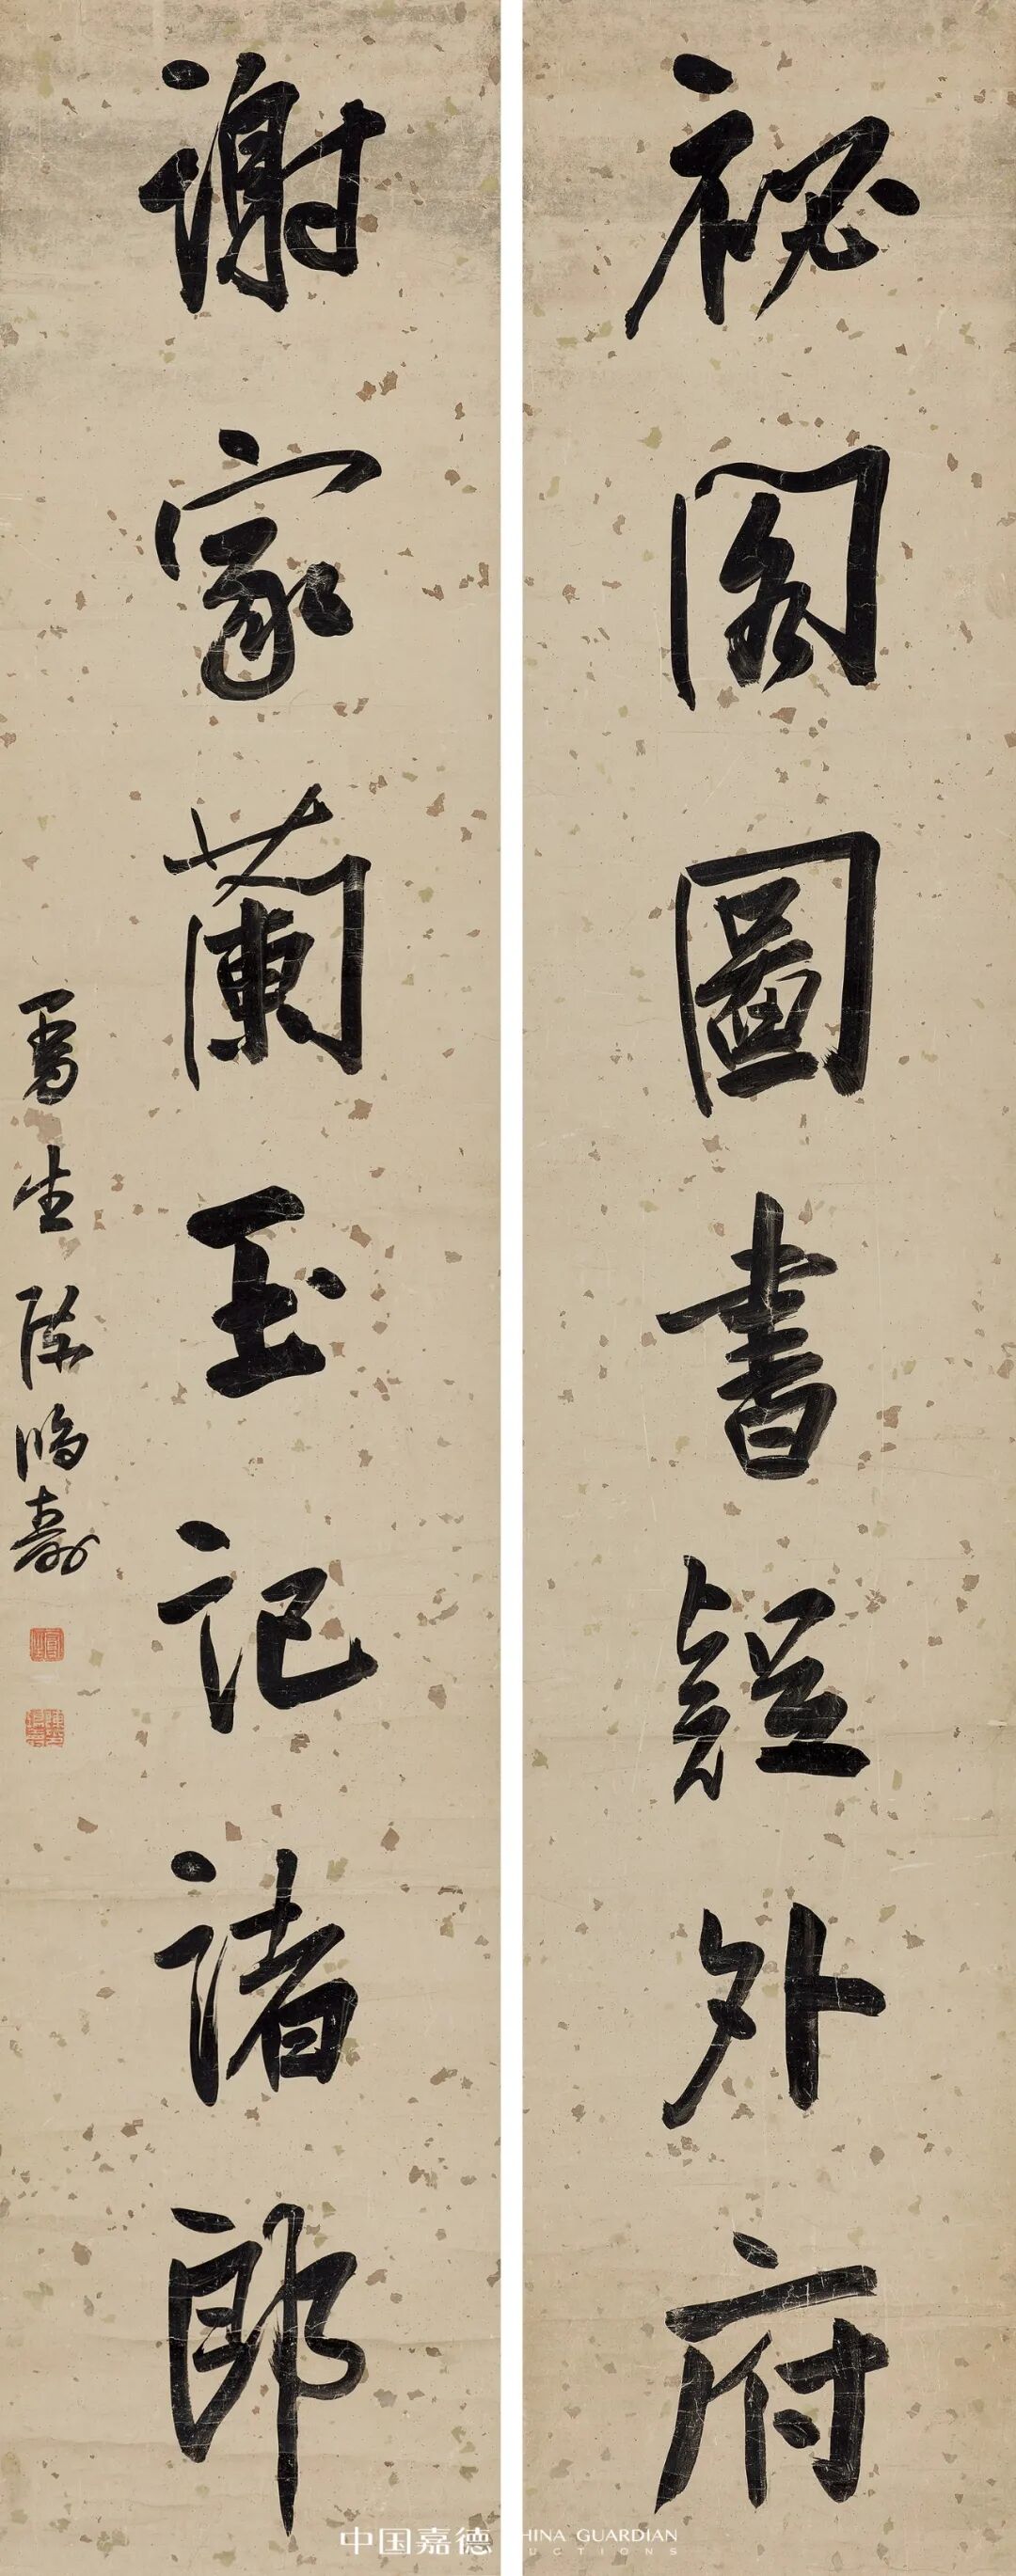 祕閣圖書疑外府
謝家蘭玉記諸郎
曼生陳鴻壽
中国嘉德
HINA GUARDIAN
UCTIONS